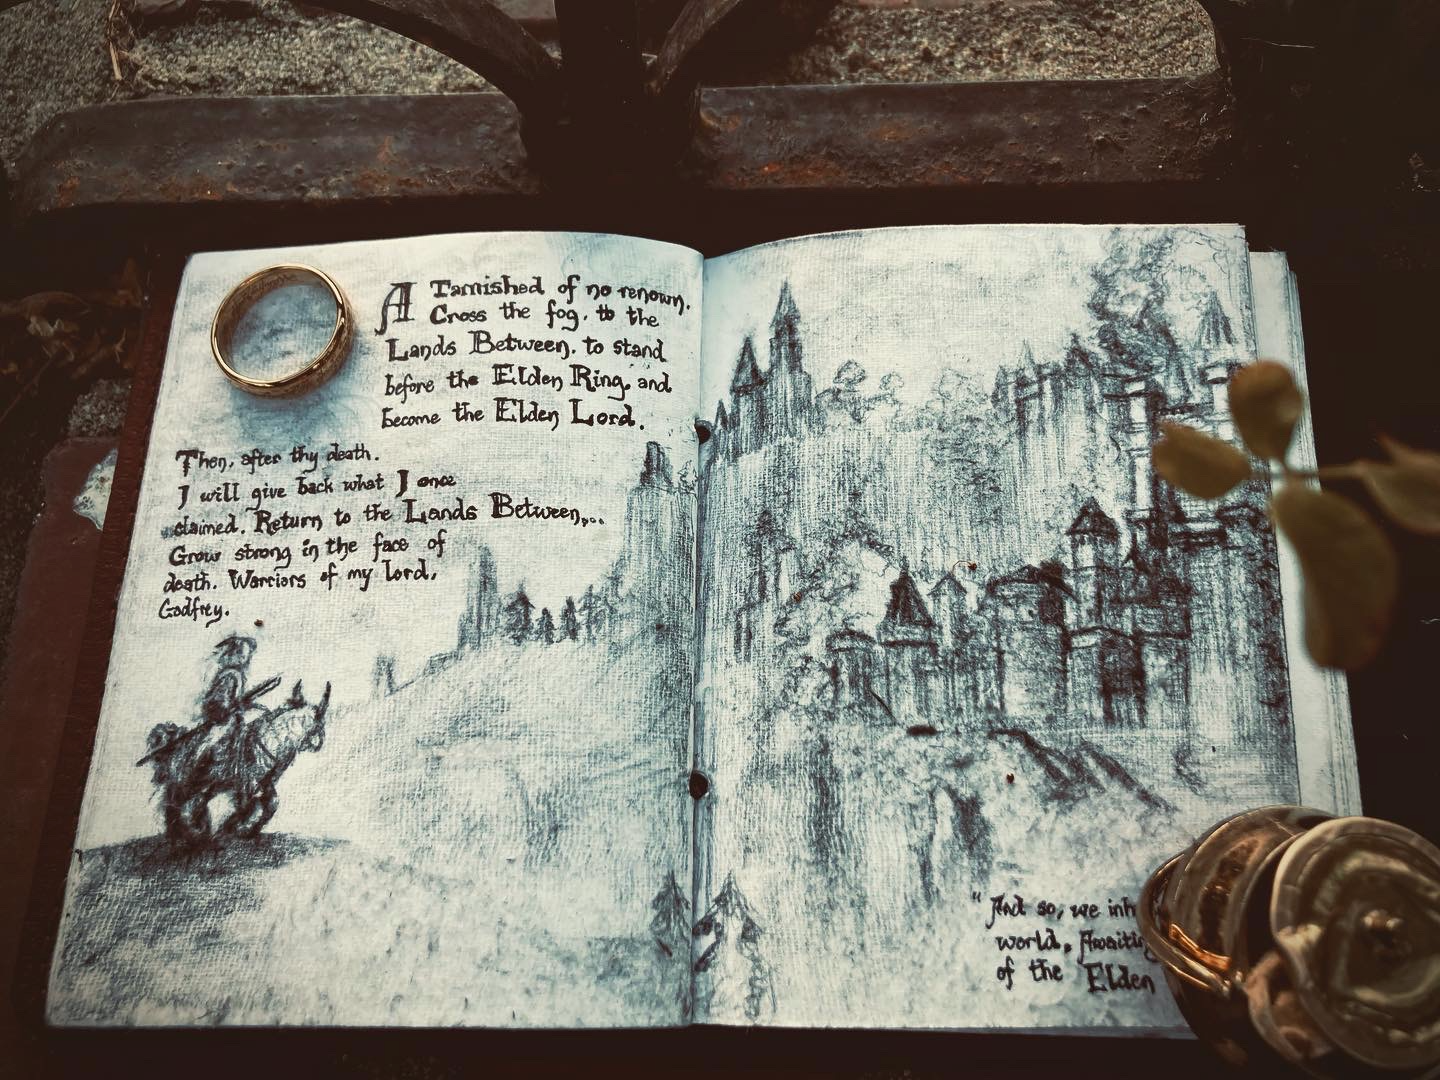 A Tarnished of no renown.
Cross the fog, to the
Lands Between, to stand
before the Elden Ring, and
become the Elden Lord.
Then, after thy death.
I will give back what I once
claimed. Return to the Lands Between,...
Grow strong in the face of
death. Warriors of my lord,
Godfrey.
"And so, we inh
world, Awaitin
of the Elden